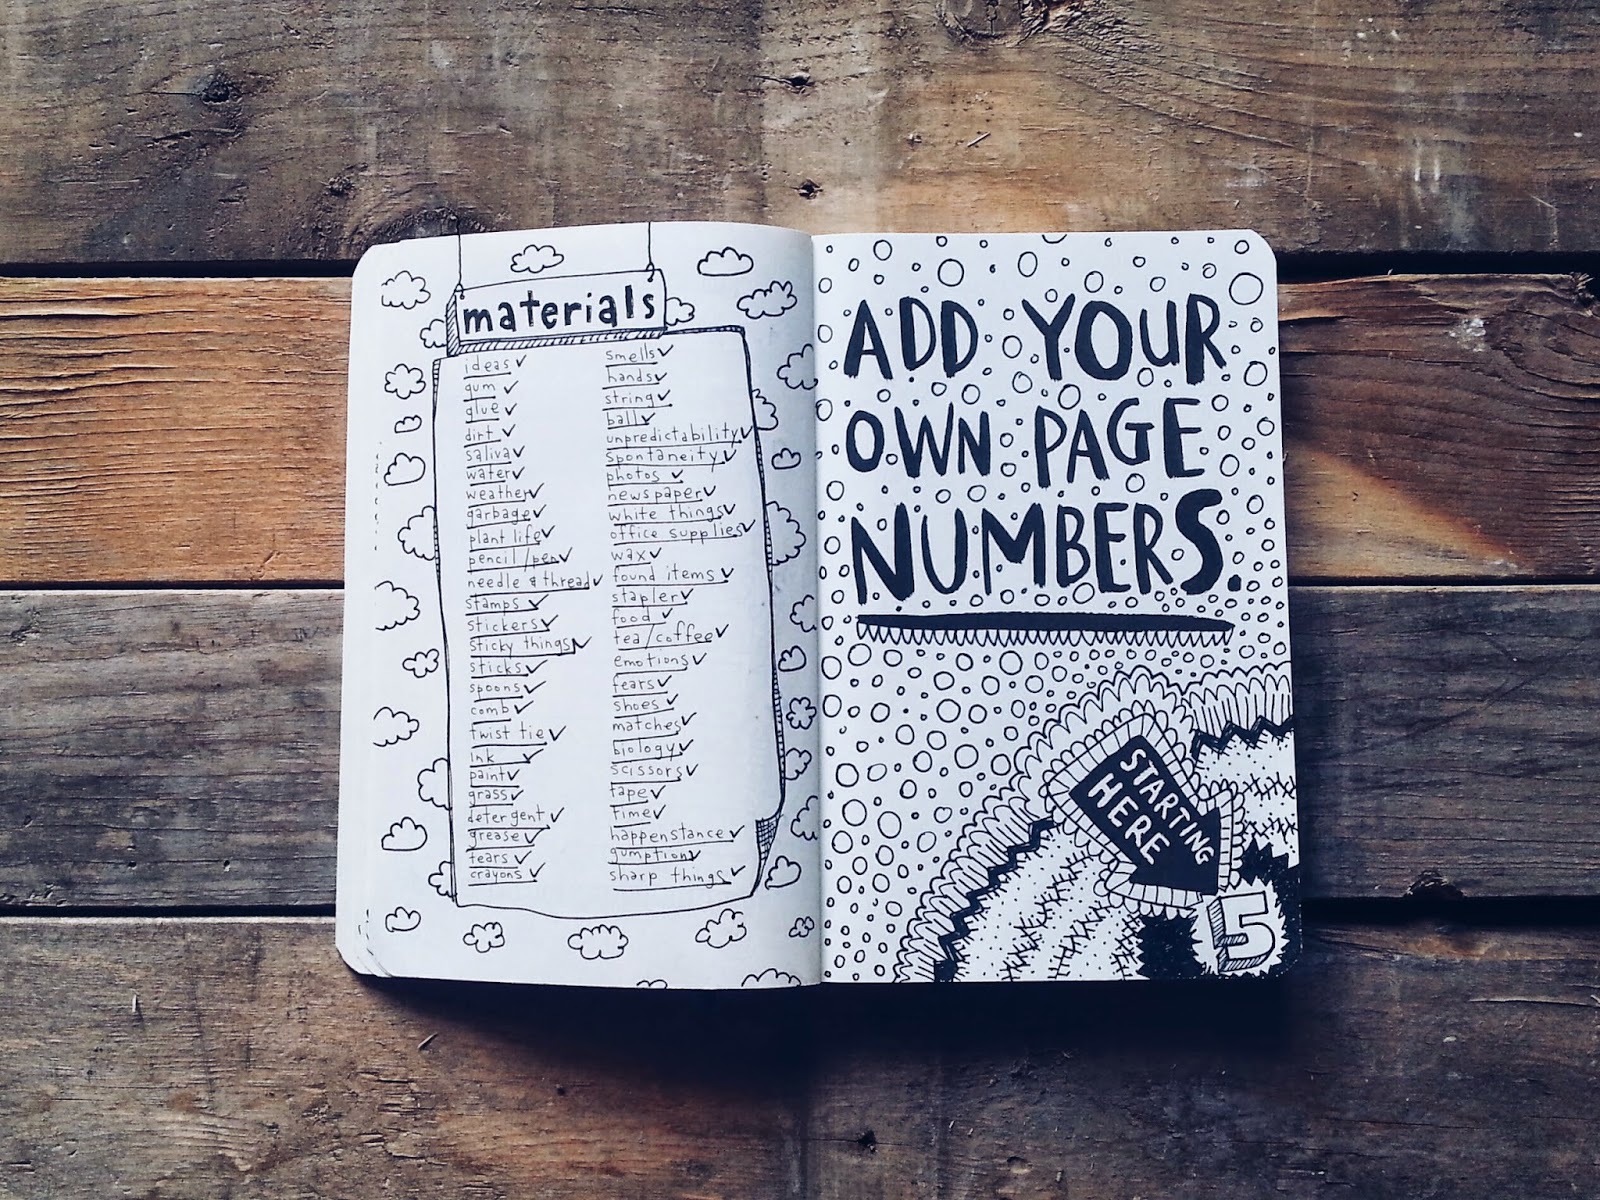 materials
ideas ✓
gum ✓
glue ✓
dirt ✓
saliva ✓
water ✓
weather ✓
garbage ✓
plant life ✓
pencil/pen ✓
needle & thread ✓
stamps ✓
stickers ✓
sticky things ✓
sticks ✓
spoons ✓
comb ✓
twist tie ✓
ink ✓
paint ✓
grass ✓
detergent ✓
grease ✓
tears ✓
crayons ✓
smells ✓
hands ✓
string ✓
ball ✓
unpredictability ✓
spontaneity ✓
photos ✓
newspaper ✓
white things ✓
office supplies ✓
wax ✓
found items ✓
stapler ✓
food ✓
tea/coffee ✓
emotions ✓
fears ✓
shoes ✓
matches ✓
biology ✓
scissors ✓
tape ✓
time ✓
happenstance ✓
gumption ✓
sharp things ✓
ADD YOUR
OWN PAGE
NUMBERS.
STARTING
HERE
5